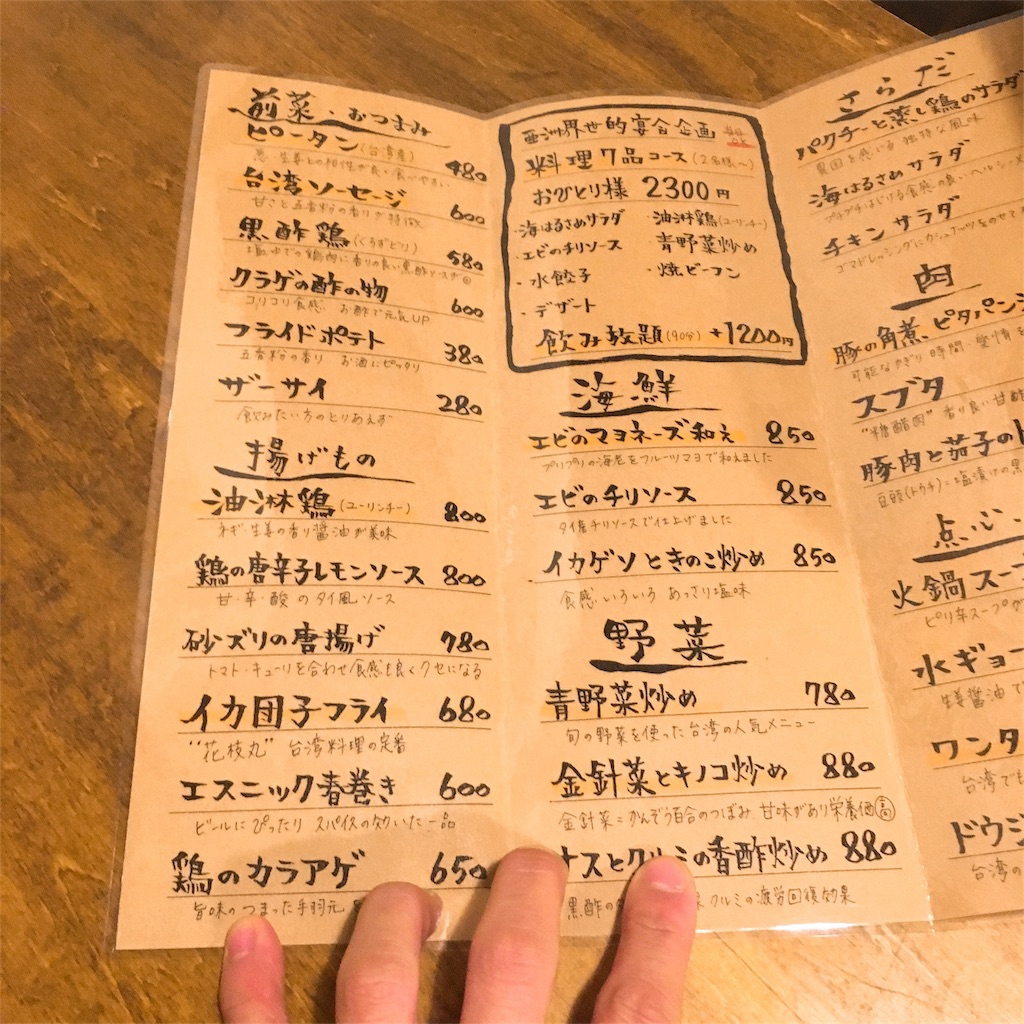 前菜・おつまみ
ピータン(台湾産) 480
台湾ソーセージ 600
甘さと五香粉の香りが特徴
黒酢鶏(くろずどり) 580
塩ゆでの鶏肉に香りの良い黒酢ソースが
クラゲの酢の物 600
コリコリ食感 お酢で元気UP
フライドポテト 380
五香粉の香り お酒にピッタリ
ザーサイ 280
飲みたい方のとりあえず
揚げもの
油淋鶏(ユーリンチー) 800
ネギ・生姜の香り醤油が美味
鶏の唐辛子レモンソース 800
甘・辛・酸のタイ風ソース
砂ズリの唐揚げ 780
トマト・キューリを合わせ食感も良くクセになる
イカ団子フライ 680
"花枝丸" 台湾料理の定番
エスニック春巻き 600
ビールにぴったり スパイスの効いた一品
鶏のカラアゲ 650
旨味のつまった手羽元
亜洲界世的宴会企画
料理7品コース(2名様〜)
おひとり様 2300円
・海はるさめサラダ ・油淋鶏(ユーリンチー)
・エビのチリソース ・青野菜炒め
・水餃子 ・焼ビーフン
・デザート
飲み放題(90分) +1200円
海鮮
エビのマヨネーズ和え 850
プリプリの海老をフルーツマヨで和えました
エビのチリソース 850
タイ産チリソースで仕上げました
イカゲソときのこ炒め 850
食感いろいろ あっさり塩味
野菜
青野菜炒め 780
旬の野菜を使った台湾の人気メニュー
金針菜とキノコ炒め 880
金針菜=かんぞう百合のつぼみ 甘味があり栄養価高
ナスとクルミの香酢炒め 880
黒酢の クルミの疲労回復効果
さらだ
パクチーと蒸し鶏のサラダ
異国を感じる 独特な風味
海はるさめサラダ
プチプチはじける食感の良いヘルシー
チキンサラダ
ゴマドレッシングにカシューナッツをのせて
肉
豚の角煮 ピタパン
可能なかぎり 時間 愛情
スブタ
"糖醋肉" 香り良い甘酢
豚肉と茄子の
豆豉(トウチ)=塩漬けの黒
点心
火鍋スープ
ピリ辛スープ
水ギョー
生姜醤油で
ワンタ
台湾でも
ドウジ
台湾の